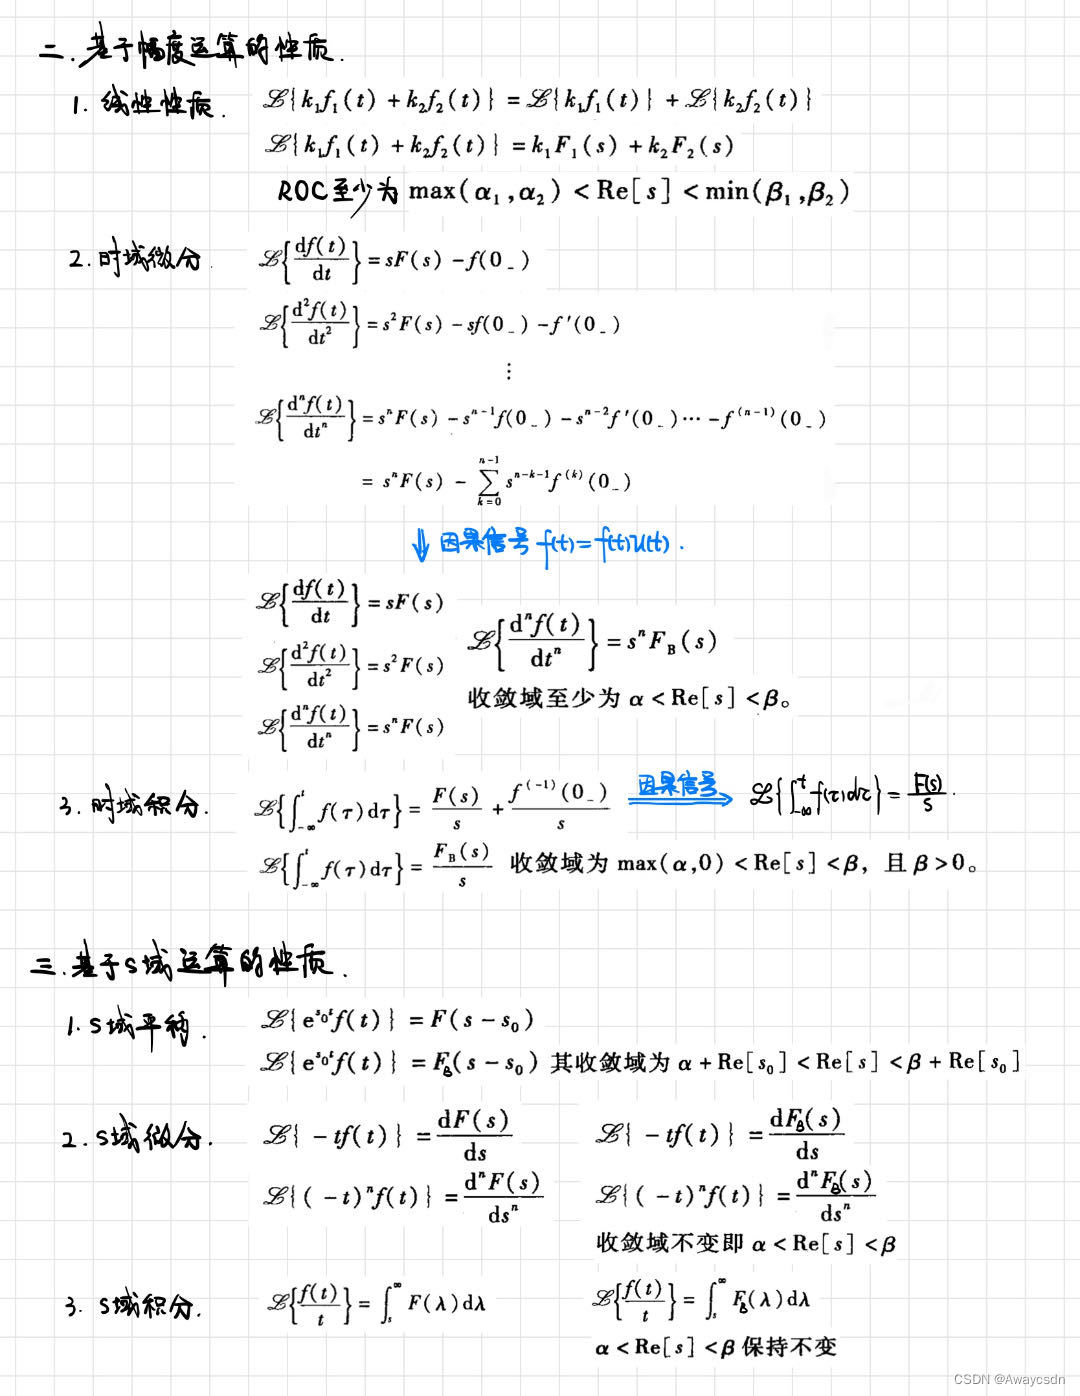 二.基于幅度运算的性质.
1. 线性性质. ℒ{k₁f₁(t) + k₂f₂(t)} = ℒ{k₁f₁(t)} + ℒ{k₂f₂(t)}
ℒ{k₁f₁(t) + k₂f₂(t)} = k₁F₁(s) + k₂F₂(s)
ROC至少为 max(α₁,α₂) < Re[s] < min(β₁,β₂)
2.时域微分. ℒ{df(t)/dt} = sF(s) - f(0₋)
ℒ{d²f(t)/dt²} = s²F(s) - sf(0₋) - f'(0₋)
⋮
ℒ{dⁿf(t)/dtⁿ} = sⁿF(s) - sⁿ⁻¹f(0₋) - sⁿ⁻²f'(0₋)⋯ - f⁽ⁿ⁻¹⁾(0₋)
= sⁿF(s) - ∑_{k=0}^{n-1} s^{n-k-1}f^{(k)}(0₋)
⇓ 因果信号 f(t)=f(t)u(t).
ℒ{df(t)/dt} = sF(s)
ℒ{d²f(t)/dt²} = s²F(s)
ℒ{dⁿf(t)/dtⁿ} = sⁿF(s)
ℒ{dⁿf(t)/dtⁿ} = sⁿF_B(s)
收敛域至少为 α < Re[s] < β。
3.时域积分. ℒ{∫_{-∞}^{t} f(τ)dτ} = F(s)/s + f⁽⁻¹⁾(0₋)/s 因果信号 ⇒ ℒ{∫_{-∞}^{t} f(τ)dτ} = F(s)/s.
ℒ{∫_{-∞}^{t} f(τ)dτ} = F_B(s)/s 收敛域为 max(α,0) < Re[s] < β, 且 β > 0。
三.基于S域运算的性质.
1.S域平移. ℒ{e^{s₀t}f(t)} = F(s - s₀)
ℒ{e^{s₀t}f(t)} = F_B(s - s₀) 其收敛域为 α + Re[s₀] < Re[s] < β + Re[s₀]
2.S域微分. ℒ{-tf(t)} = dF(s)/ds ℒ{-tf(t)} = dF_B(s)/ds
ℒ{(-t)ⁿf(t)} = dⁿF(s)/dsⁿ ℒ{(-t)ⁿf(t)} = dⁿF_B(s)/dsⁿ
收敛域不变即 α < Re[s] < β
3. S域积分. ℒ{f(t)/t} = ∫_{s}^{∞} F(λ)dλ ℒ{f(t)/t} = ∫_{s}^{∞} F_B(λ)dλ
α < Re[s] < β 保持不变
CSDN @Awaycsdn